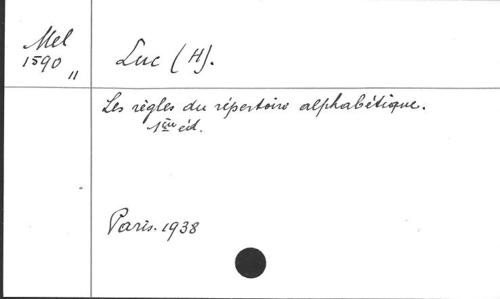 Mel
1590
"
Luc (H).
Les règles du répertoire alphabétique.
1ère éd.
Paris. 1938